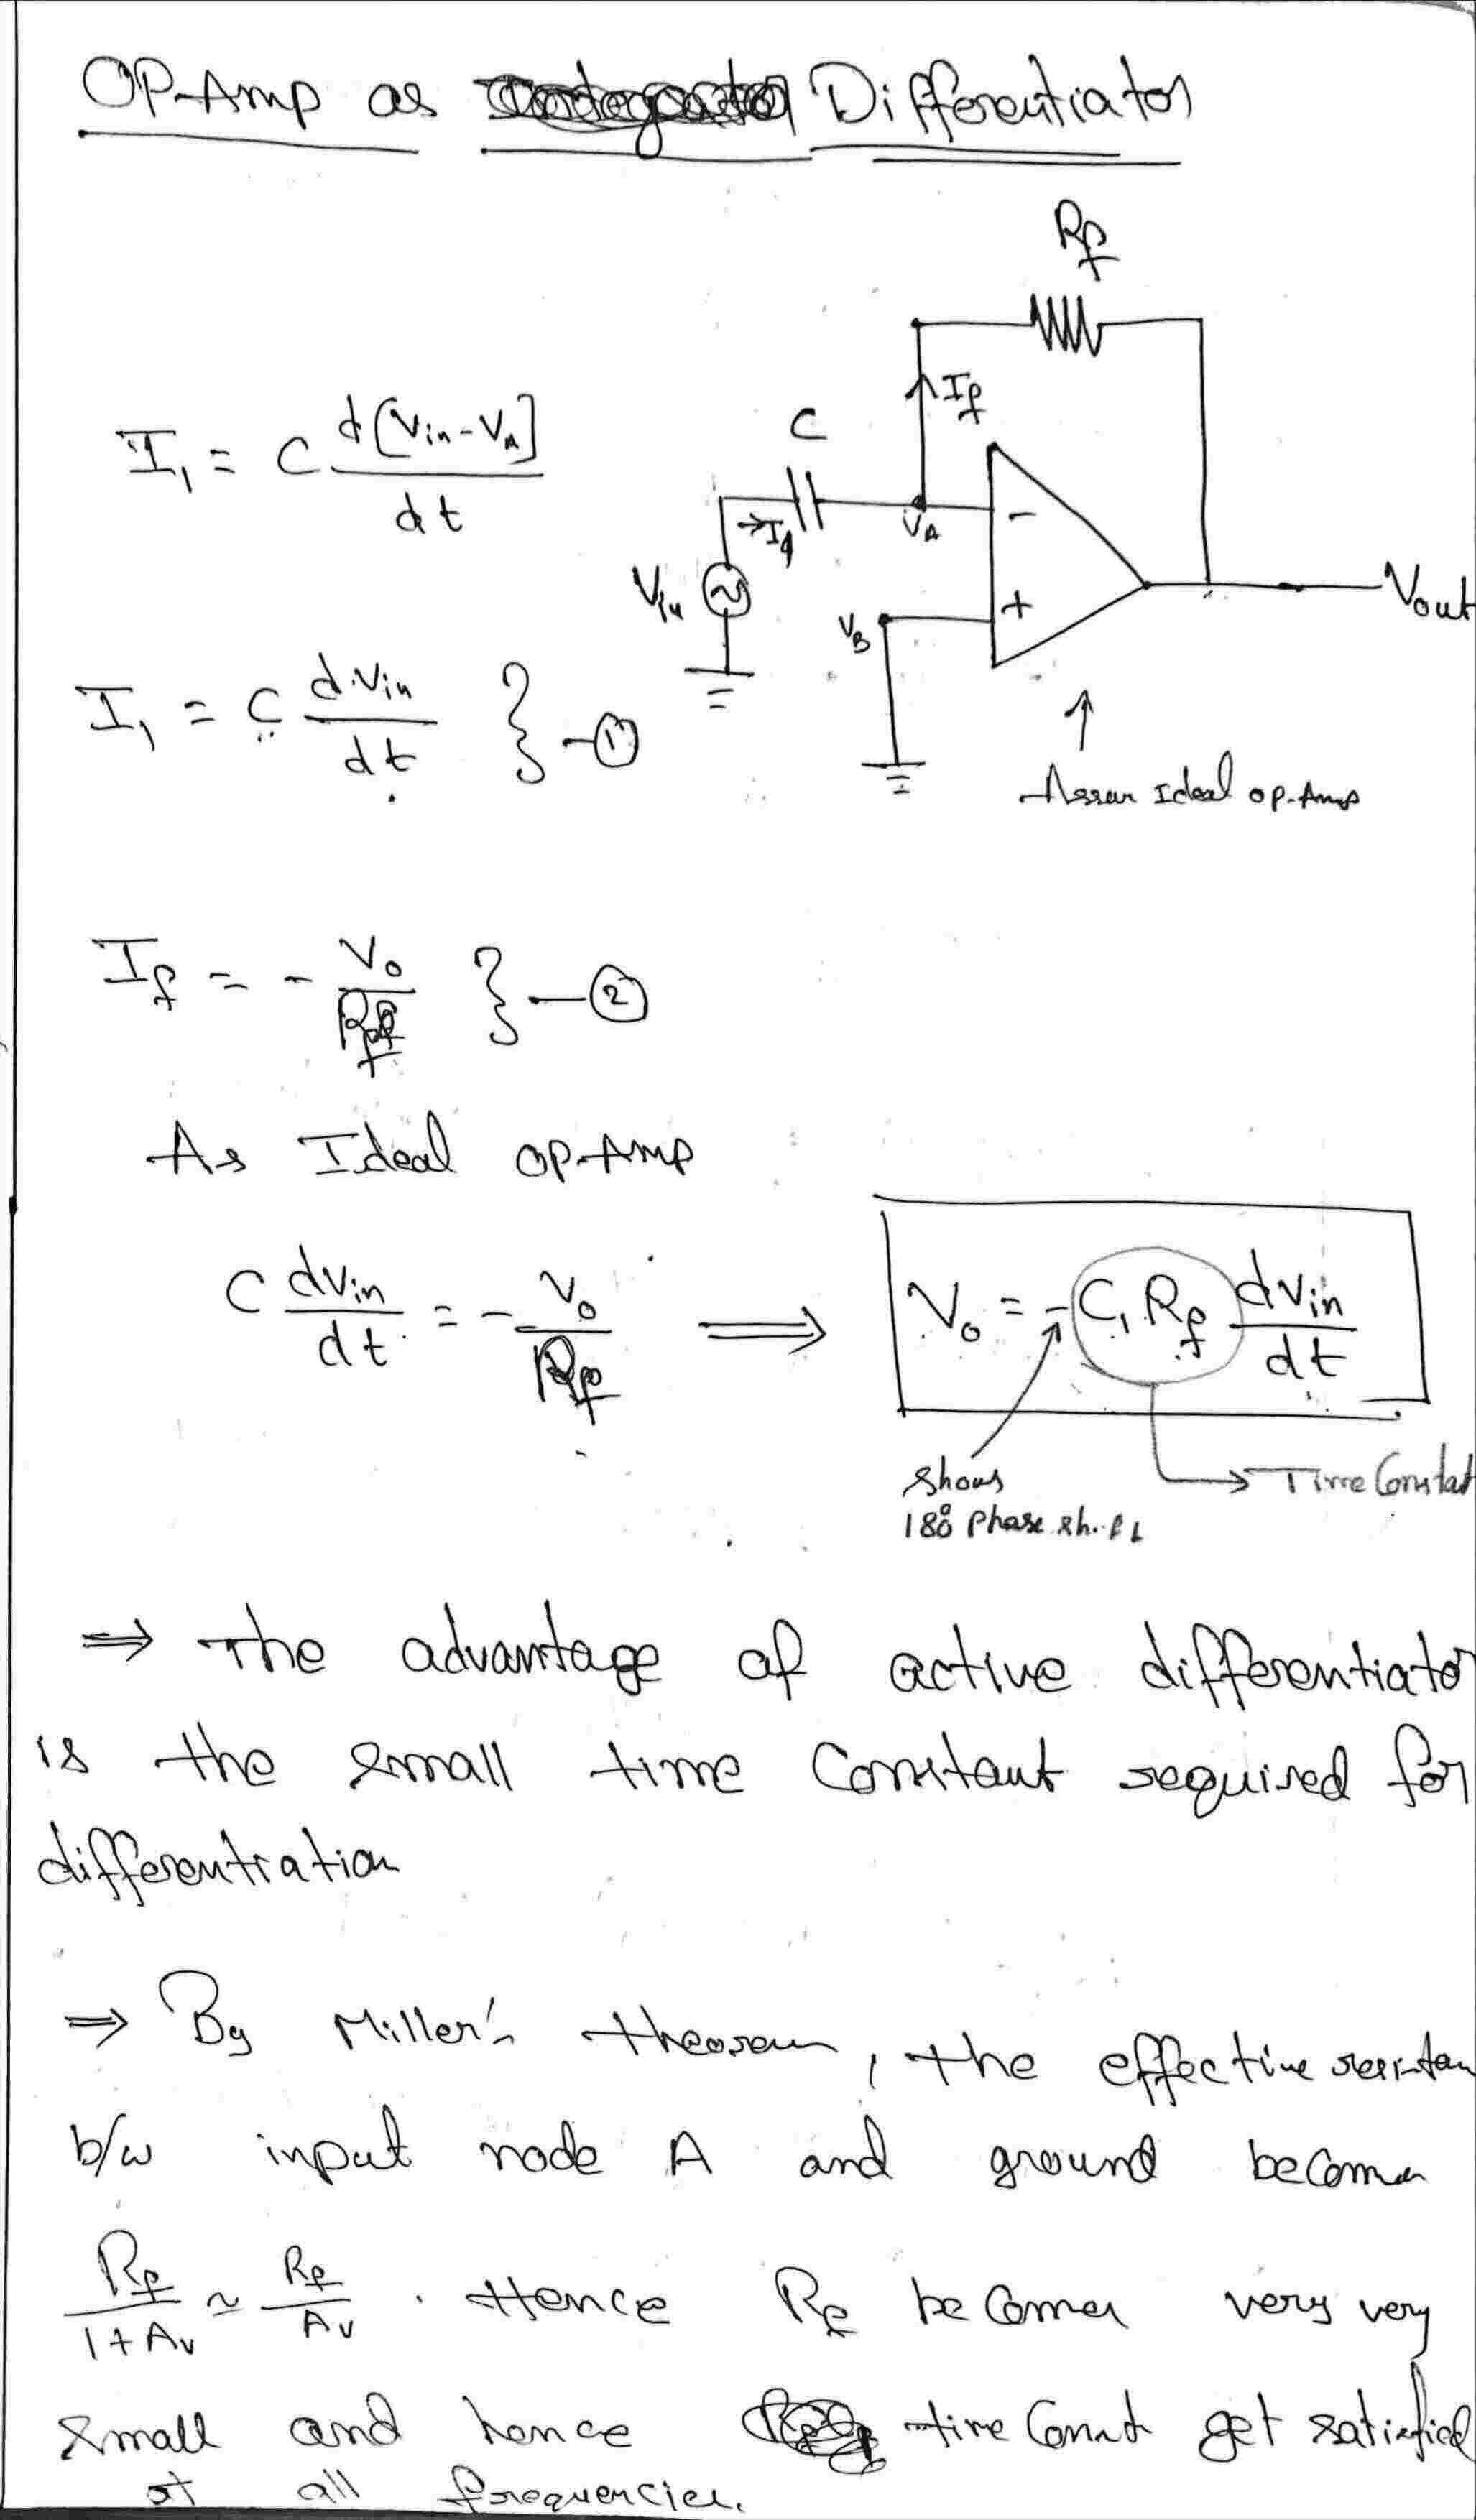 OP-Amp as Differentiator
Rf
If
C
I1 = C d[Vin - VA] / dt
I1
VA
-
Vin
+
VB
Vout
I1 = C dVin / dt } - ①
Assum Ideal op-Amp
If = - Vo / Rf } - ②
As Ideal OP-Amp
C dVin / dt = - Vo / Rf ⟹ Vo = - C1 Rf dVin / dt
Shows
180° Phase shift
Time Constat
⇒ The advantage of active differentiator
is the small time Constant required for
differentiation
⇒ By Miller's theorem, the effective resistan
b/w input node A and ground becomes
Rf / 1+Av ≃ Rf / Av . Hence Rf becomes very very
small and hence time Const get satisfied
at all frequencies.